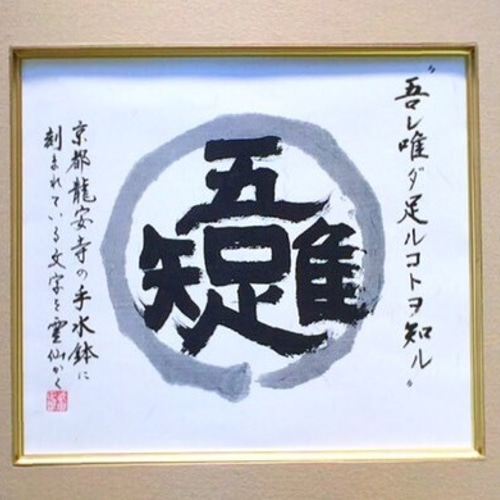 〝吾レ唯ダ足ルコトヲ知ル〟
吾唯足知
京都龍安寺の手水鉢に
刻まれている文字を雲仙かく